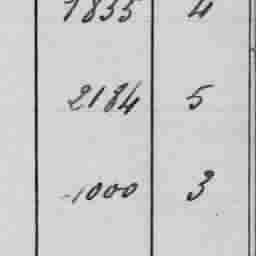 1835 4
2184 5
1000 3